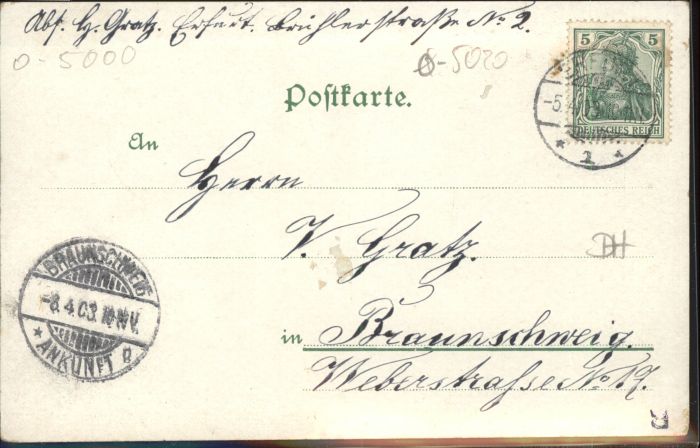 Abs. H. Gratz. Erfurt. Brühlerstraße No 2.
0-5000
0-5020
5 5
DEUTSCHES REICH
-5.4
* 1 *
Postkarte.
An
Herrn
V. Gratz.
in Braunschweig.
Weberstrasse No. 17.
BRAUNSCHWEIG
-6.4.03. 10-11 V.
* ANKUNFT *
DH
R